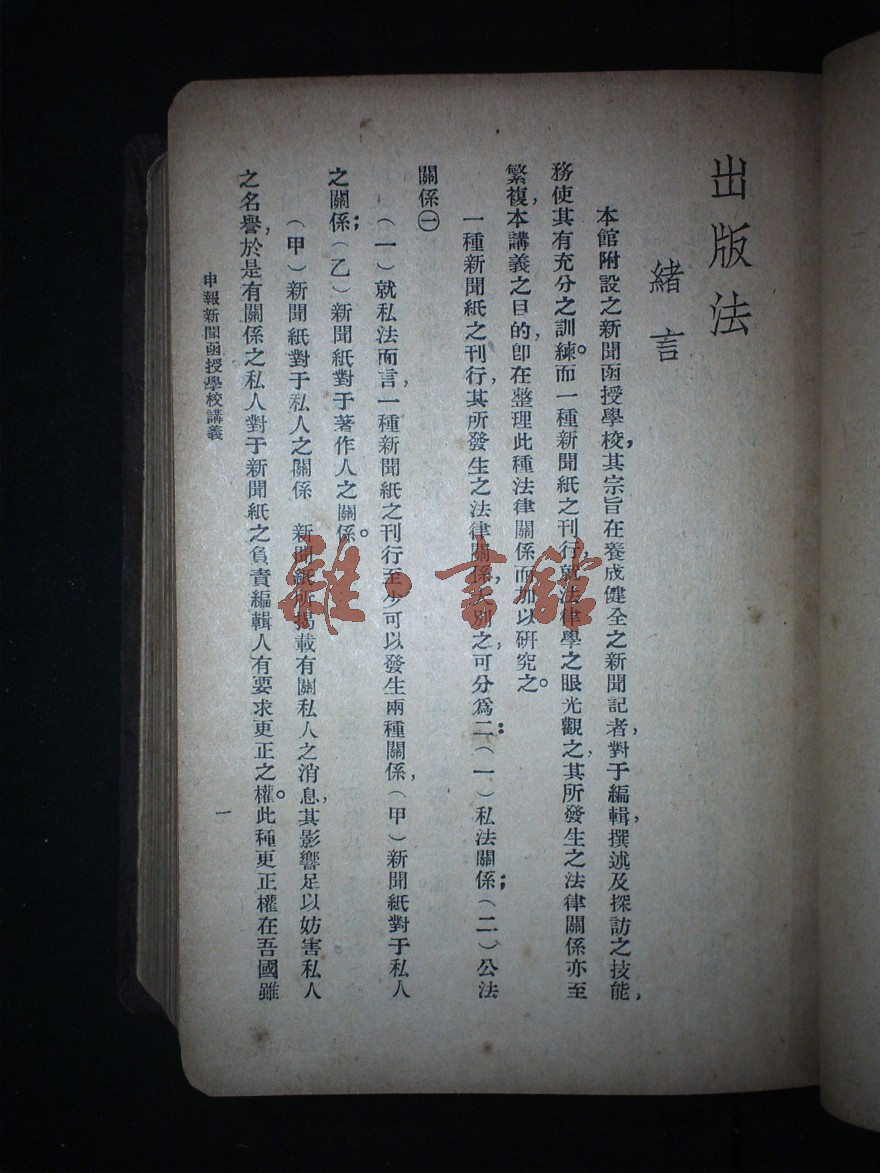 出版法
緒言
本館附設之新聞函授學校，其宗旨在養成健全之新聞記者，對于編輯，撰述及探訪之技能，
務使其有充分之訓練。而一種新聞紙之刊行，就法律學之眼光觀之，其所發生之法律關係亦至
繁複，本講義之目的，卽在整理此種法律關係而加以研究之。
一種新聞紙之刊行，其所發生之法律關係，大別之，可分爲二：（一）私法關係；（二）公法
關係㊀
（一）就私法而言，一種新聞紙之刊行至少可以發生兩種關係，（甲）新聞紙對于私人
之關係；（乙）新聞紙對于著作人之關係。
（甲）新聞紙對于私人之關係　新聞紙所揭載有關私人之消息，其影響足以妨害私人
之名譽，於是有關係之私人對于新聞紙之負責編輯人有要求更正之權。此種更正權在吾國雖
申報新聞函授學校講義
一
雜·書館